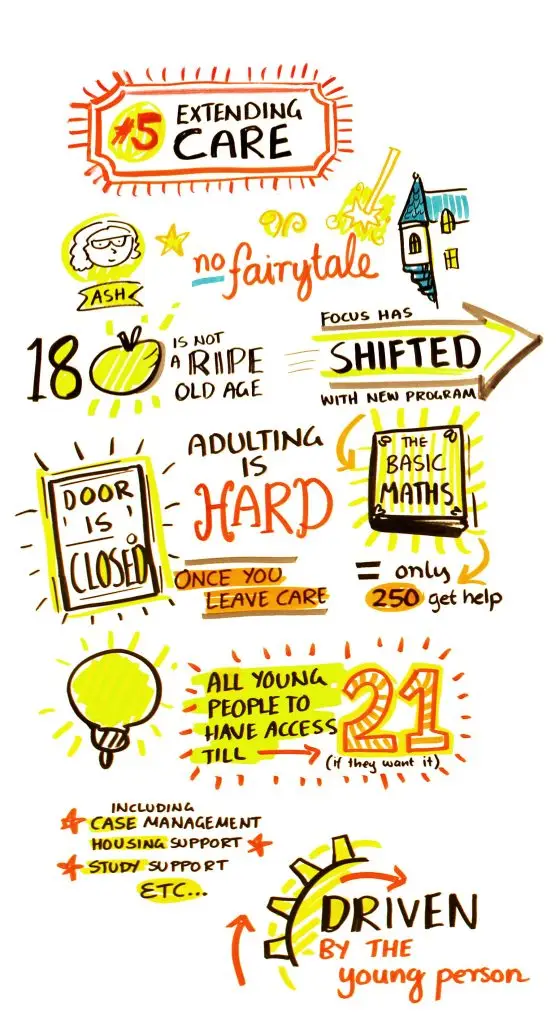 #5 EXTENDING
CARE
ASH
no fairytale
18 IS NOT
A RIPE
OLD AGE
FOCUS HAS
SHIFTED
WITH NEW PROGRAM
DOOR
IS
CLOSED
ADULTING
IS
HARD
ONCE YOU
LEAVE CARE
THE
BASIC
MATHS
= only
250 get help
ALL YOUNG
PEOPLE TO
HAVE ACCESS
TILL
21
(if they want it)
INCLUDING
CASE MANAGEMENT
HOUSING SUPPORT
STUDY SUPPORT
ETC...
DRIVEN
BY THE
young person